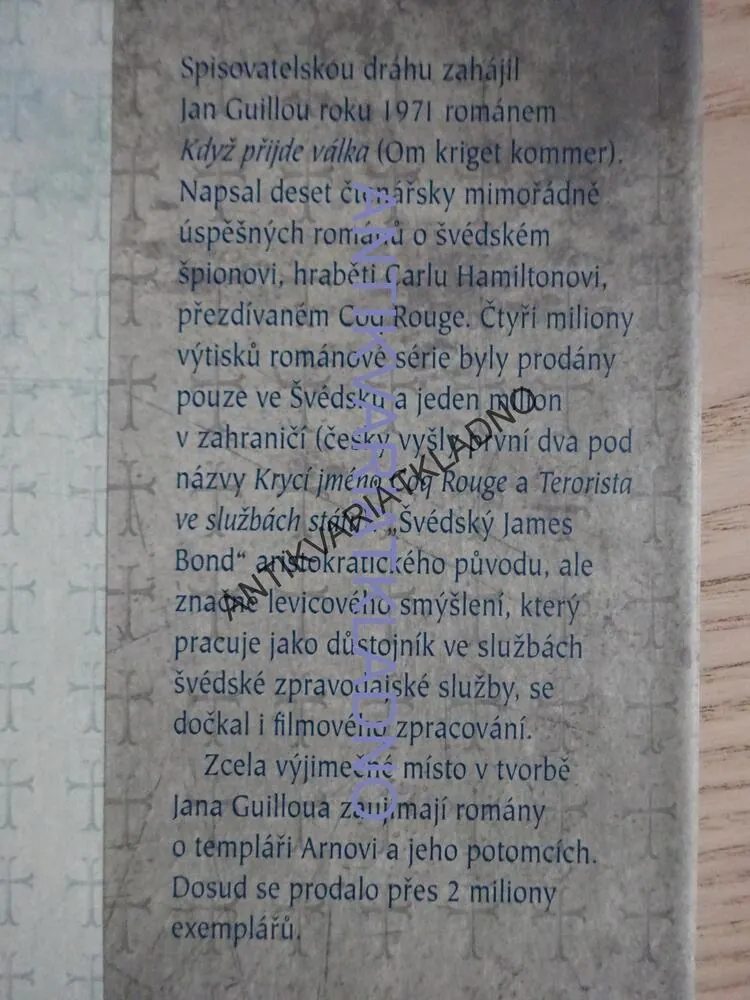 Spisovatelskou dráhu zahájil
Jan Guillou roku 1971 románem
Když přijde válka (Om kriget kommer).
Napsal deset čtenářsky mimořádně
úspěšných románů o švédském
špionovi, hraběti Carlu Hamiltonovi,
přezdívaném Coq Rouge. Čtyři miliony
výtisků románové série byly prodány
pouze ve Švédsku a jeden milion
v zahraničí (česky vyšly první dva pod
názvy Krycí jméno Coq Rouge a Terorista
ve službách státu). „Švédský James
Bond“ aristokratického původu, ale
značně levicového smýšlení, který
pracuje jako důstojník ve službách
švédské zpravodajské služby, se
dočkal i filmového zpracování.
Zcela výjimečné místo v tvorbě
Jana Guilloua zaujímají romány
o templáři Arnovi a jeho potomcích.
Dosud se prodalo přes 2 miliony
exemplářů.
ANTIKVARIATKLADNO
ANTIKVARIATKLADNO